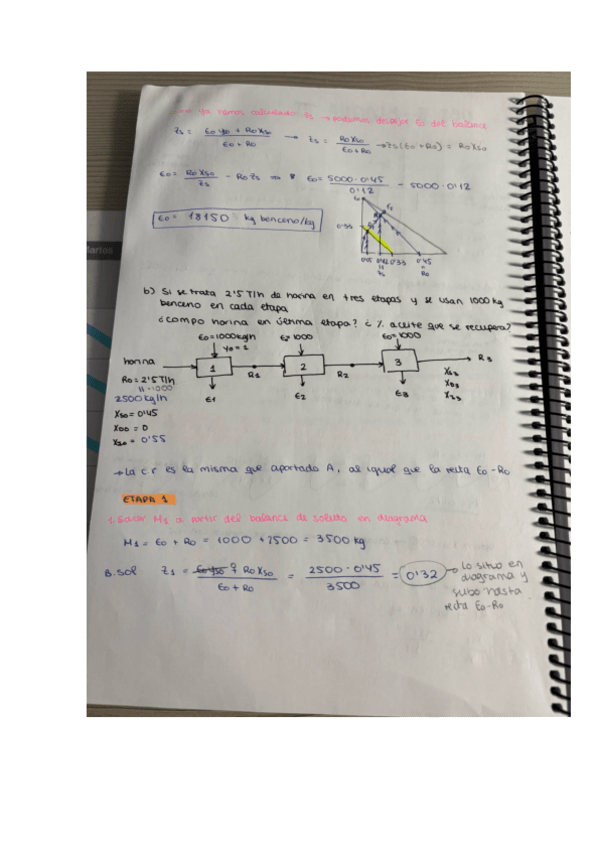 ya hemos calculado zs → podemos despejar E0 del balance
zs = E0y0 + R0xs0 / E0 + R0 → zs = R0xs0 / E0 + R0 → zs(E0 + R0) = R0xs0
E0 = R0xs0 / zs - R0zs ⇒ E0 = 5000·0'45 / 0'12 - 5000·0'12
E0 = 18150 kg benceno/kg
E0 E1
0'33
0'12 0'33 0'45
zs R0
b) Si se trata 2'5 T/h de harina en tres etapas y se usan 1000 kg
benceno en cada etapa
¿compo harina en última etapa? ¿% aceite que se recupera?
E0=1000kg/h E=1000 E0=1000
y0=1
harina 1 R1 2 R2 3 R3
R0=2'5T/h
2500kg/h E1 E2 E3 xs3
xD3
xI3
xs0=0'45
xD0=0
xI0=0'55
→ La c.r es la misma que apartado A, al igual que la recta E0-R0
ETAPA 1
1. Sacar M1 a partir del balance de soluto en diagrama
M1 = E0 + R0 = 1000 + 2500 = 3500 kg
B.sol z1 = E0ys0 + R0xs0 / E0 + R0 = 2500·0'45 / 3500 = 0'32 → lo situo en
diagrama y
subo hasta
recta E0-R0
Martes